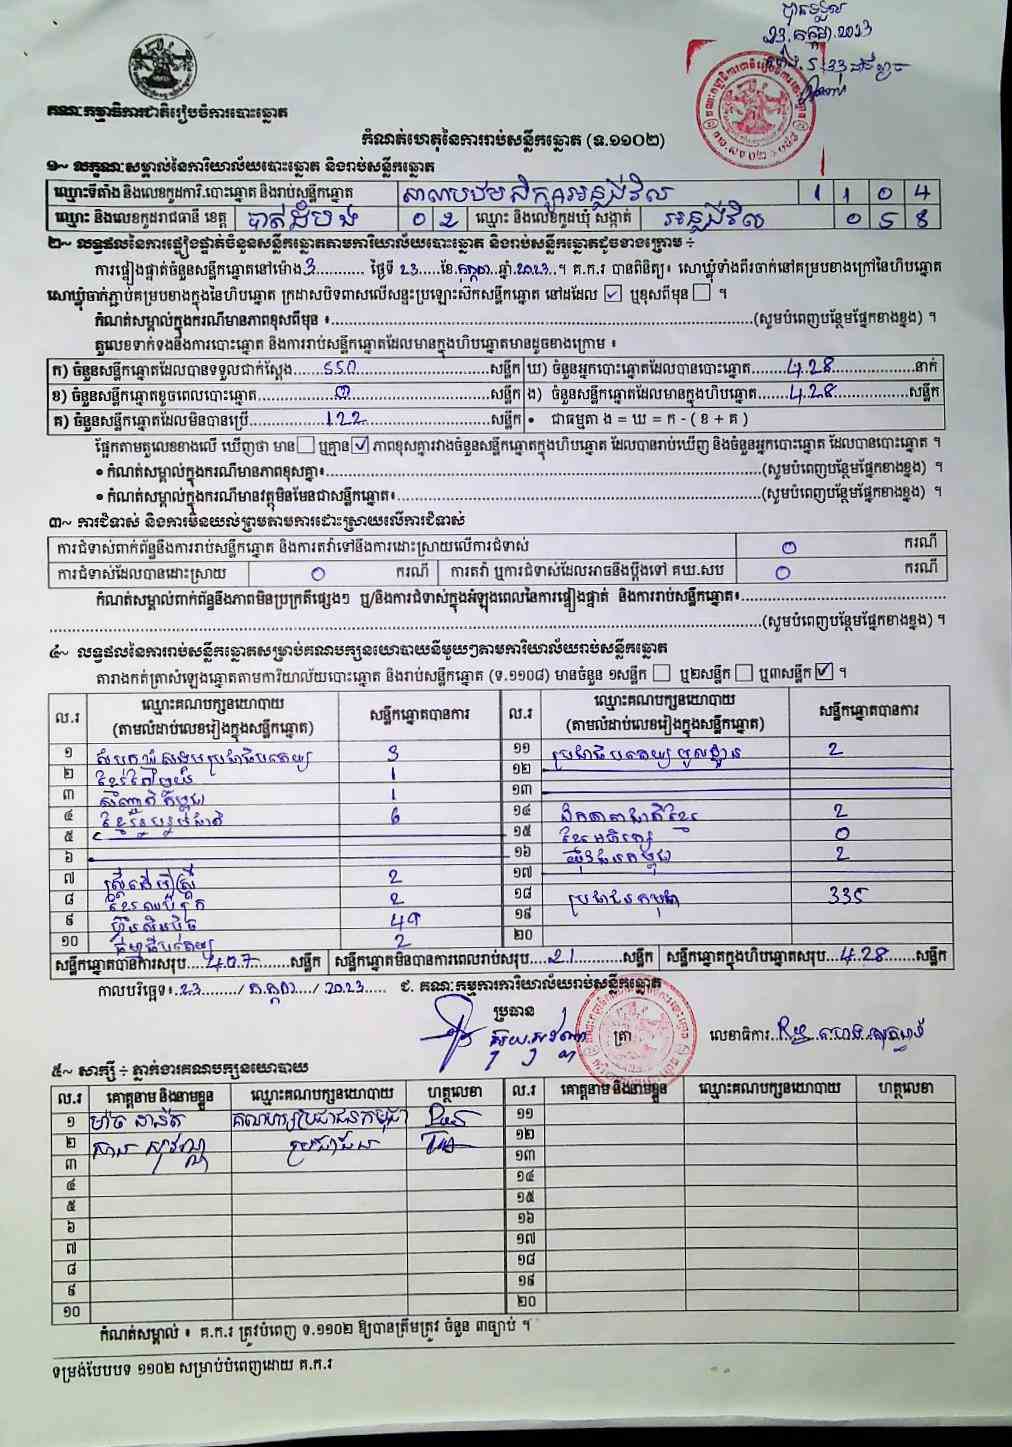 បានទទួល
23.កក្កដា.2023
គណៈកម្មាធិការជាតិរៀបចំការបោះឆ្នោត
កំណត់ហេតុនៃការរាប់សន្លឹកឆ្នោត (ទ.១១០២)
១~ លក្ខណៈសម្គាល់នៃការិយាល័យបោះឆ្នោត និងរាប់សន្លឹកឆ្នោត
ឈ្មោះទីតាំង និងលេខកូដការិ.បោះឆ្នោត និងរាប់សន្លឹកឆ្នោត សាលាបឋមសិក្សាអន្លង់វិល 1 1 0 4
ឈ្មោះ និងលេខកូដរាជធានី ខេត្ត បាត់ដំបង 0 2 ឈ្មោះ និងលេខកូដឃុំ សង្កាត់ អន្លង់វិល 0 5 8
២~ លទ្ធផលនៃការផ្ទៀងផ្ទាត់ចំនួនសន្លឹកឆ្នោតតាមការិយាល័យបោះឆ្នោត និងរាប់សន្លឹកឆ្នោតដូចខាងក្រោម ÷
ការផ្ទៀងផ្ទាត់ចំនួនសន្លឹកឆ្នោតនៅម៉ោង 3 ថ្ងៃទី 23 ខែ កក្កដា ឆ្នាំ 2023 ។ គ.ក.រ បានពិនិត្យ៖ សោឃ្លុំទាំងពីរចាក់នៅគម្របខាងក្រៅនៃហិបឆ្នោត
សោឃ្លុំចាក់ភ្ជាប់គម្របខាងក្នុងនៃហិបឆ្នោត ក្រដាសបិទពាសលើសន្ទះប្រឡោះស៊កសន្លឹកឆ្នោត នៅដដែល ☑ ឬខុសពីមុន ☐ ។
កំណត់សម្គាល់ក្នុងករណីមានភាពខុសពីមុន ៖ (សូមបំពេញបន្ថែមផ្នែកខាងខ្នង) ។
តួលេខទាក់ទងនឹងការបោះឆ្នោត និងការរាប់សន្លឹកឆ្នោតដែលមានក្នុងហិបឆ្នោតមានដូចខាងក្រោម ៖
ក) ចំនួនសន្លឹកឆ្នោតដែលបានទទួលជាក់ស្ដែង 550 សន្លឹក ឃ) ចំនួនអ្នកបោះឆ្នោតដែលបានបោះឆ្នោត 428 នាក់
ខ) ចំនួនសន្លឹកឆ្នោតខូចពេលបោះឆ្នោត 0 សន្លឹក ង) ចំនួនសន្លឹកឆ្នោតដែលមានក្នុងហិបឆ្នោត 428 សន្លឹក
គ) ចំនួនសន្លឹកឆ្នោតដែលមិនបានប្រើ 122 សន្លឹក • ជាធម្មតា ង = ឃ = ក - ( ខ + គ )
ផ្អែកតាមតួលេខខាងលើ ឃើញថា មាន ☐ ឬគ្មាន ☑ ភាពខុសគ្នារវាងចំនួនសន្លឹកឆ្នោតក្នុងហិបឆ្នោត ដែលបានរាប់ឃើញ និងចំនួនអ្នកបោះឆ្នោត ដែលបានបោះឆ្នោត ។
• កំណត់សម្គាល់ក្នុងករណីមានភាពខុសគ្នា៖ (សូមបំពេញបន្ថែមផ្នែកខាងខ្នង) ។
• កំណត់សម្គាល់ក្នុងករណីមានវត្ថុមិនមែនជាសន្លឹកឆ្នោត៖ (សូមបំពេញបន្ថែមផ្នែកខាងខ្នង) ។
៣~ ការជំទាស់ និងការមិនយល់ព្រមតាមការដោះស្រាយលើការជំទាស់
ការជំទាស់ពាក់ព័ន្ធនឹងការរាប់សន្លឹកឆ្នោត និងការតវ៉ាទៅនឹងការដោះស្រាយលើការជំទាស់ 0 ករណី
ការជំទាស់ដែលបានដោះស្រាយ 0 ករណី ការតវ៉ា ឬការជំទាស់ដែលអាចនឹងប្ដឹងទៅ គឃ.សប 0 ករណី
កំណត់សម្គាល់ពាក់ព័ន្ធនឹងភាពមិនប្រក្រតីផ្សេងៗ ឬ/និងការជំទាស់ក្នុងអំឡុងពេលនៃការផ្ទៀងផ្ទាត់ និងការរាប់សន្លឹកឆ្នោត៖
(សូមបំពេញបន្ថែមផ្នែកខាងខ្នង) ។
៤~ លទ្ធផលនៃការរាប់សន្លឹកឆ្នោតសម្រាប់គណបក្សនយោបាយនីមួយៗតាមការិយាល័យរាប់សន្លឹកឆ្នោត
តារាងកត់ត្រាសំឡេងឆ្នោតតាមការិយាល័យបោះឆ្នោត និងរាប់សន្លឹកឆ្នោត (ទ.១១០៨) មានចំនួន ១សន្លឹក ☐ ឬ២សន្លឹក ☐ ឬ៣សន្លឹក ☑ ។
ល.រ ឈ្មោះគណបក្សនយោបាយ (តាមលំដាប់លេខរៀងក្នុងសន្លឹកឆ្នោត) សន្លឹកឆ្នោតបានការ ល.រ ឈ្មោះគណបក្សនយោបាយ (តាមលំដាប់លេខរៀងក្នុងសន្លឹកឆ្នោត) សន្លឹកឆ្នោតបានការ
១ សំបុកឃ្មុំសង្គមប្រជាធិបតេយ្យ 3 ១១ ប្រជាធិបតេយ្យមូលដ្ឋាន 2
២ ខ្មែរតែមួយ 1 ១២
៣ 1 ១៣
៤ 6 ១៤ ឯកភាពជាតិខ្មែរ 2
៥ ១៥ 0
៦ ១៦ យុវជនកម្ពុជា 2
៧ ស្ត្រីដើម្បីស្ត្រី 2 ១៧
៨ 2 ១៨ ប្រជាជនកម្ពុជា 335
៩ ហ៊្វុនស៊ិនប៉ិច 49 ១៩
១០ 2 ២០
សន្លឹកឆ្នោតបានការសរុប 407 សន្លឹក សន្លឹកឆ្នោតមិនបានការពេលរាប់សរុប 21 សន្លឹក សន្លឹកឆ្នោតក្នុងហិបឆ្នោតសរុប 428 សន្លឹក
កាលបរិច្ឆេទ៖ 23 / កក្កដា / 2023 ជ. គណៈកម្មការការិយាល័យរាប់សន្លឹកឆ្នោត
ប្រធាន
ត្រា លេខាធិការ
៥~ សាក្សី ÷ ភ្នាក់ងារគណបក្សនយោបាយ
ល.រ គោត្តនាម និងនាមខ្លួន ឈ្មោះគណបក្សនយោបាយ ហត្ថលេខា ល.រ គោត្តនាម និងនាមខ្លួន ឈ្មោះគណបក្សនយោបាយ ហត្ថលេខា
១ គណបក្សប្រជាជនកម្ពុជា ១១
២ សុវណ្ណ ប្រជាជន ១២
៣ ១៣
៤ ១៤
៥ ១៥
៦ ១៦
៧ ១៧
៨ ១៨
៩ ១៩
១០ ២០
កំណត់សម្គាល់ ៖ គ.ក.រ ត្រូវបំពេញ ទ.១១០២ ឱ្យបានត្រឹមត្រូវ ចំនួន ៣ច្បាប់ ។
ទម្រង់បែបបទ ១១០២ សម្រាប់បំពេញដោយ គ.ក.រ